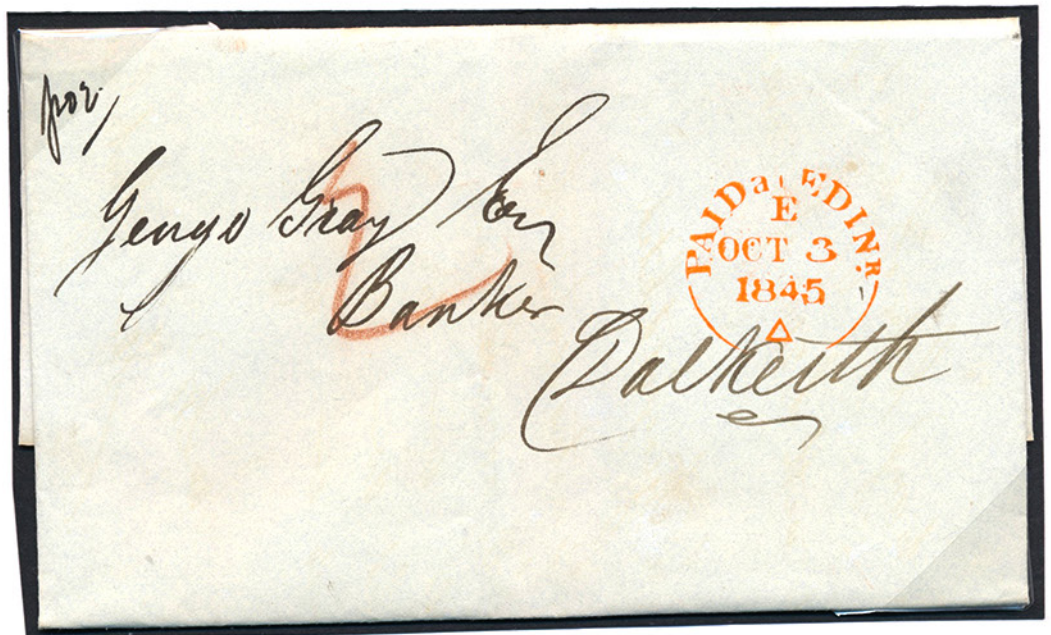 George Gray Esq
Banker
Dalkeith
PAID at EDINR
E
OCT 3
1845